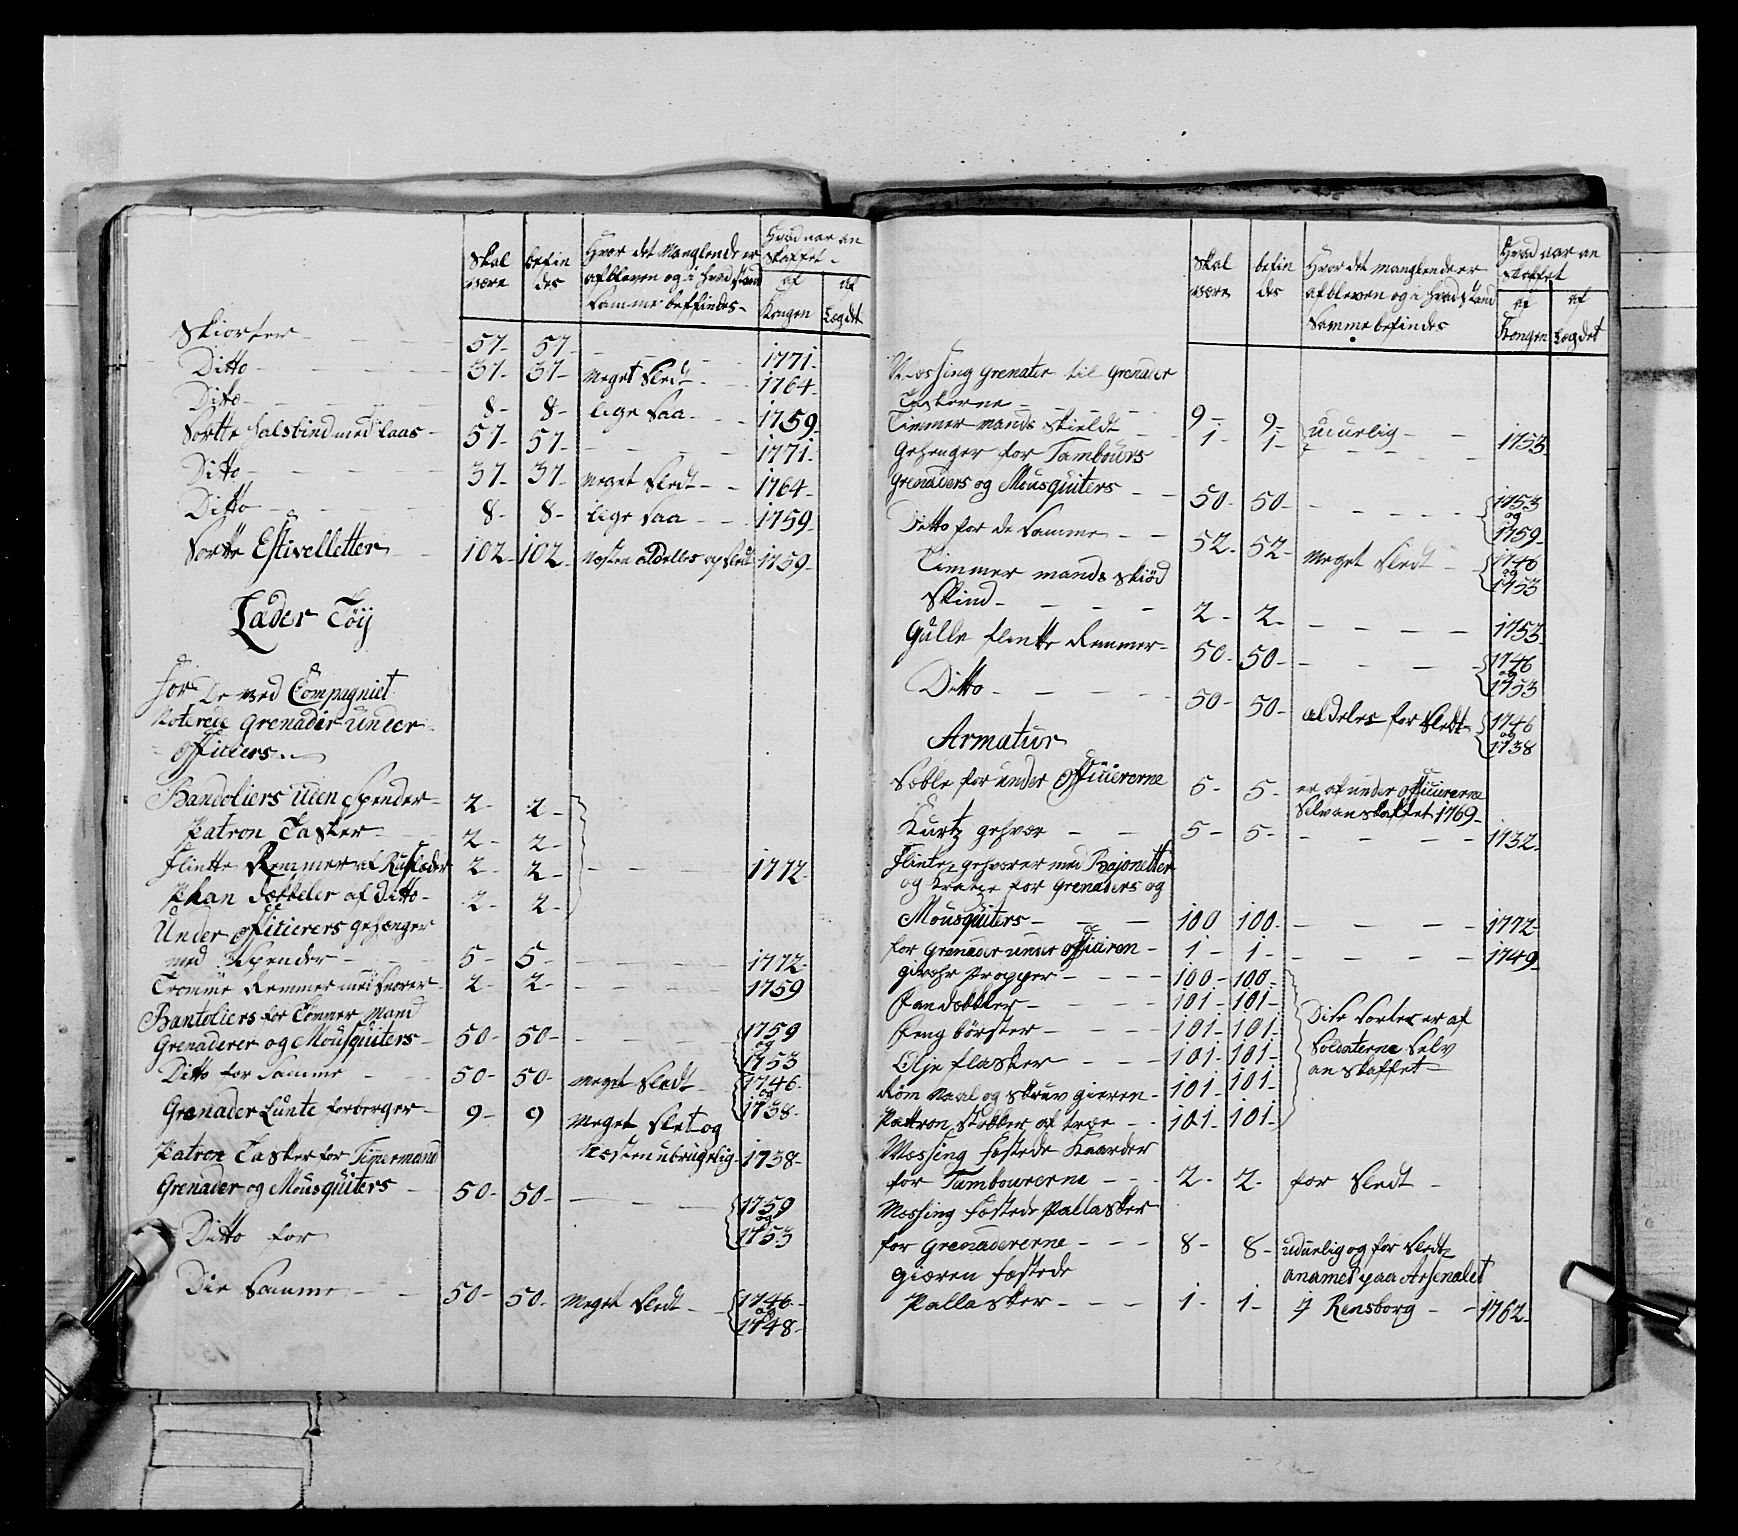 Skal være
befin des
Hvor det Manglende er
afbleven og i hvad stand
Samme beffindes-
Hvad aar an
skaffet-
af Kongen
af Lægdet
Skiorter - 57- 57- - 1771-
Ditto - 37- 37- Meget Sledt - 1764-
Ditto - 8- 8- lige saa - 1759-
Sortte Halsbind med laas - 57- 57- - 1771-
Ditto - 37- 37- Meget Sledt - 1764-
Ditto - 8- 8- lige saa - 1759-
Sortte Estivelletter - 102- 102- Næsten aldelles opsledt 1759-
Læder Töy
for De ved Compagniet
Noterede Grenadir Under
Officiers
Bandoliers uden Spender - 2- 2-
Patron Tasker 2- 2-
Flintte Remmer af Rusleder 2- 2- - 1772-
Phan dækkeler af Ditto - 2- 2-
Under Officierers gehænger
med Spender - 5- 5- - 1772-
Tromme Remmer med Snorer 2- 2- - 1759
Bantoliers for Tömmer Mand
Grenaderer og Mousquiters - 50- 50- - 1759 og 1753
Ditto for Samme - 50- 50- Meget Sledt 1746- og 1738-
Grenader Lunte forberger - 9- 9 Meget Slet og
Næsten ubrugelig - 1738-
Patron Tasker for Timermand
Grenader og Mousquiters - 50- 50- - 1759 og 1753
Ditto for
Die Samme - 50- 50- Meget Sledt - 1746- og 1748-
Skal være
befin des
Hvor det manglende er
afbleven og i hvad stand
Samme befindes
Hvad aar an
skaffet
af Kongen
af Lægdet
Messing Grenater til Grenader
Taskerne - 9- 9- uduelig - 1753-
Timmer mands Skieldt - 1- 1-
Gehenger for Tambours
Grenaders og Mousquiters - 50- 50- - 1753 og 1759-
Ditto for de Samme - 52- 52- Meget Sledt - 1746 og 1753
Timmer mands Skiöd
Skind - 2- 2- - 1753-
Gulle flintte Remmer - 50- 50- - 1746 og 1753
Ditto - 50- 50- aldeles for Sledt - 1746 og 1738
Armatur
Sæble for under Officiererne 5- 5- er af under Officiererne
Selv anskaffet 1769-
Kurtz gehvær - 5- 5- - 1732-
Flinte gehværer med Bajonetter
og Kratze for Grenaders og
Mousquiters - 100 100- - 1772-
for Grenader under Officiren - 1- 1- - 1749-
gevehr Propper - 100- 100-
Pandækkler - 101- 101-
Feng börster - 101- 101- Dise Sorter er af
Olje flasker - 101- 101- Soldaterne Selv
Röm Naal og Skruv gieren - 101- 101- an skaffet-
Pattron Stökker af træe - 101- 101-
Messing fæstede Kaarder
for Tambourerne - 2- 2- for Sledt -
Messing fæstede Pallasker
for Grenadererne - 8- 8- uduelig og for Sledt
gieren fæstede anamet paa Arsenalet
Pallasker - 1- 1- ij Rensborg - 1762-